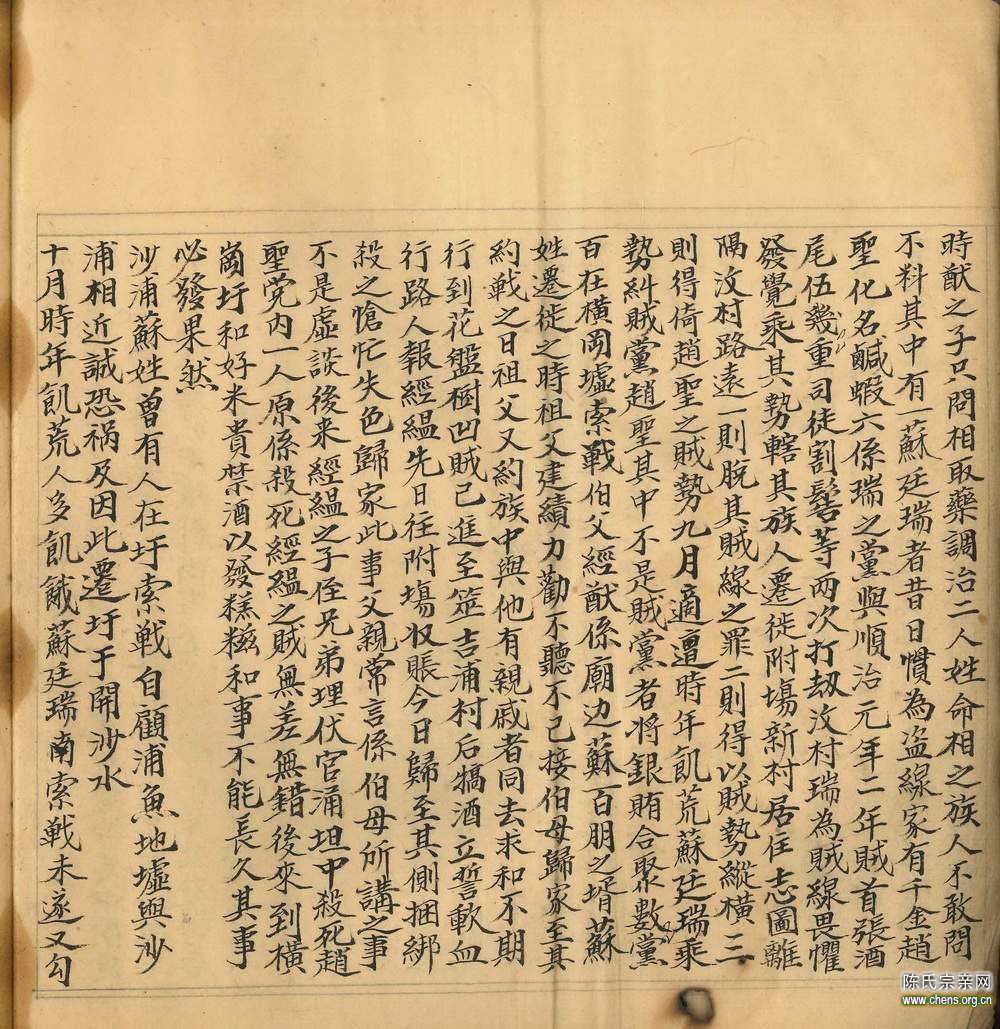 時猷之子只問相取藥調治二人姓命相之族人不敢問
不料其中有一蘇廷瑞者昔日慣為盜線家有千金趙
聖化名鹹蝦六係瑞之黨與順治元年二年賊首張酒
尾伍幾重司徒割髻等兩次打刼汶村瑞為賊線畏懼
發覺乘其勢轄其族人遷徙附塲新村居住志圖離
隔汶村路遠一則脫其賊線之罪二則得以賊勢縱橫三
則得倚趙聖之賊勢九月適遭時年飢荒蘇廷瑞乘
勢糾賊黨趙聖其中不是賊黨者將銀賄合聚數黨
百在橫岡墟索戰伯父經猷係廟边蘇百朋之壻蘇
姓遷徙之時祖父建績力勸不聽不已接伯母歸家至其
約戰之日祖父又約族中與他有親戚者同去求和不期
行到花盤樹凹賊已進至筮吉浦村后犒酒立誓歃血
行路人報經緼先日往附塲收賬今日歸至其側捆綁
殺之愴忙失色歸家此事父親常言係伯母所講之事
不是虛談後来經緼之子侄兄弟埋伏官涌坦中殺死趙
聖党内一人原係殺死經緼之賊無差無錯後來到橫
崗圩和好米貴禁酒以發糕糍和事不能長久其事
必發果然
沙浦蘇姓曾有人在圩索戰自顧浦魚地墟與沙
浦相近誠恐祸及因此遷圩于開沙水
十月時年飢荒人多飢餓蘇廷瑞南索戰未遂又勾
陈氏宗亲网
www.chens.org.cn